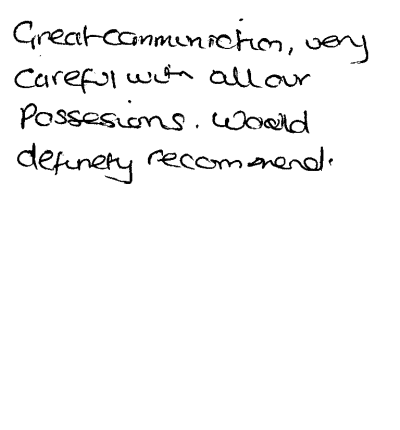 Great communiction, very
careful with all our
Possesions. Would
definety recommend.